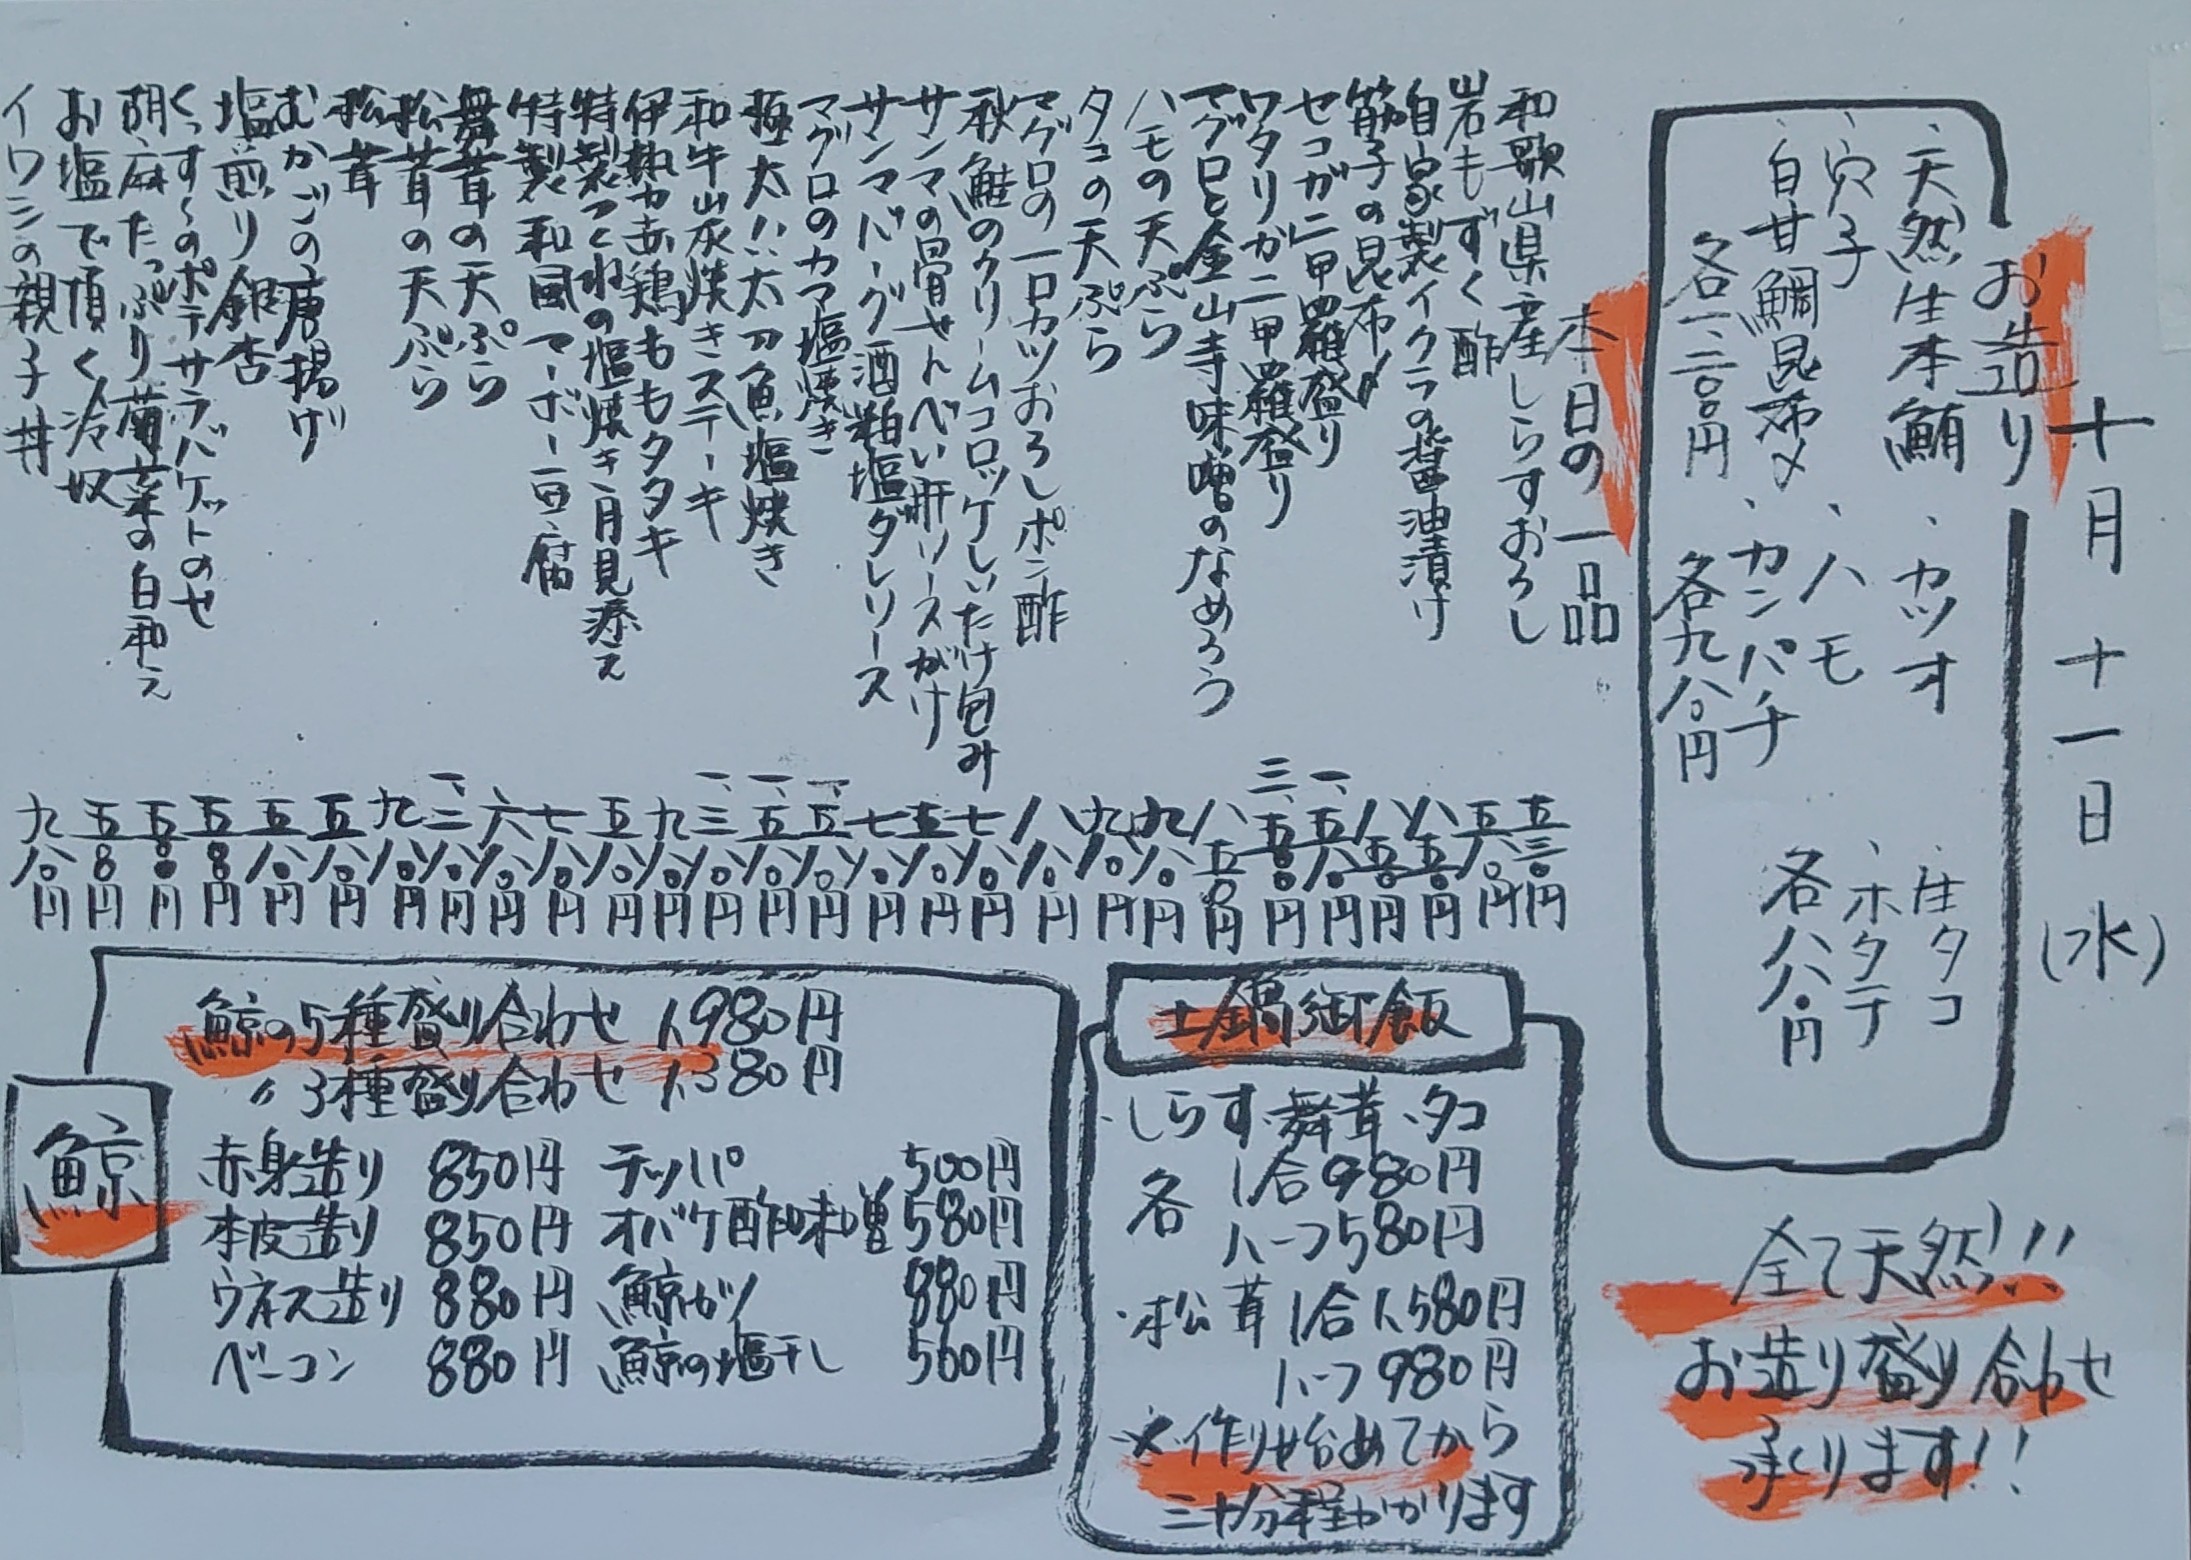 十月十一日(水)
お造り
、天然生本鮪 、カツオ 、庄タコ
、穴子 、ハモ 、ホタテ
、白甘鯛昆布〆 、カンパチ 各八八〇円
各一、二八〇円 各九八〇円
本日の一品
和歌山県産しらすおろし 五三〇円
岩もずく酢 五八〇円
自家製イクラの醤油漬け 八五〇円
筋子の昆布〆 八五〇円
セコガニ甲羅盛り 一、五八〇円
ワタリガニ甲羅盛り 三、五〇〇円
マグロと金山寺味噌のなめろう 八五〇円
ハモの天ぷら 九八〇円
タコの天ぷら 九八〇円
マグロの一口カツおろしポン酢 八八〇円
秋鮭のクリームコロッケしいたけ包み 七八〇円
サンマの骨せんべい肝ソースがけ 五八〇円
サンマバーグ酒粕塩ダレソース 七八〇円
マグロのカマ塩焼き 一、五八〇円
極太!!太刀魚塩焼き 一、五八〇円
和牛山灰焼きステーキ 一、三八〇円
伊勢赤鶏ももタタキ 九八〇円
特製つくねの塩焼き月見添え 五八〇円
特製和風マーボー豆腐 七八〇円
舞茸の天ぷら 六八〇円
松茸の天ぷら 一、三八〇円
松茸 九八〇円
むかごの唐揚げ 五八〇円
塩煎り銀杏 五八〇円
くっすんのポテサラバケットのせ 五五〇円
胡麻たっぷり菊菜の白和え 五五〇円
お塩で頂く冷奴 五五〇円
イワシの親子丼 九八〇円
全て天然!!
お造り盛り合わせ
承ります!!
土鍋御飯
・しらす、舞茸、タコ
各 1合980円
ハーフ580円
・松茸 1合1,580円
ハーフ980円
※作り始めてから
三十分程かかります
鯨
鯨の5種盛り合わせ 1,980円
〃3種盛り合わせ 1,380円
赤身造り 850円 テッパ 500円
本皮造り 850円 オバケ酢味噌 580円
ウネス造り 880円 鯨カツ 880円
ベーコン 880円 鯨の塩干し 560円